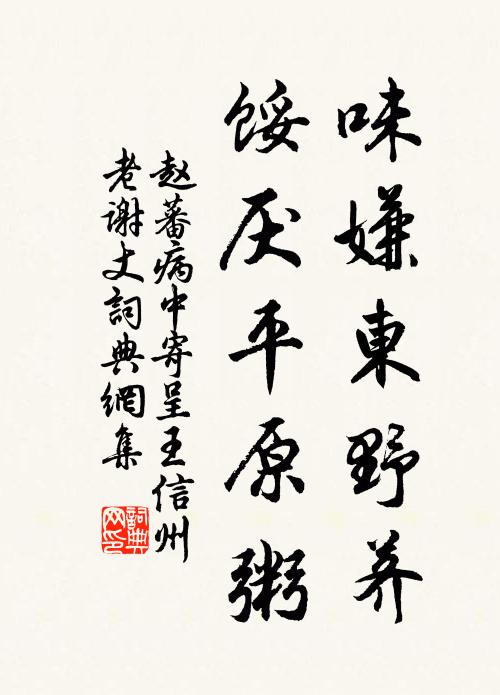 味嫌東野荠
餒厌平原粥
赵蕃病中寄呈王信州
老謝丈詞典網集
詞典网印